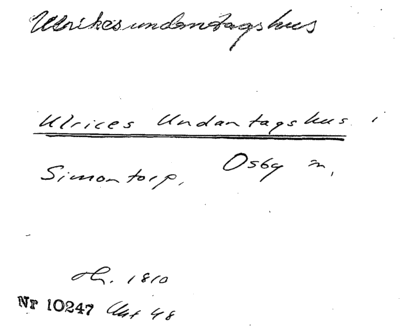 Ulrikesundantagshus
Ulrices Undantagshus i
Simontorp, Osby sn,
1810
Nr 10247 48